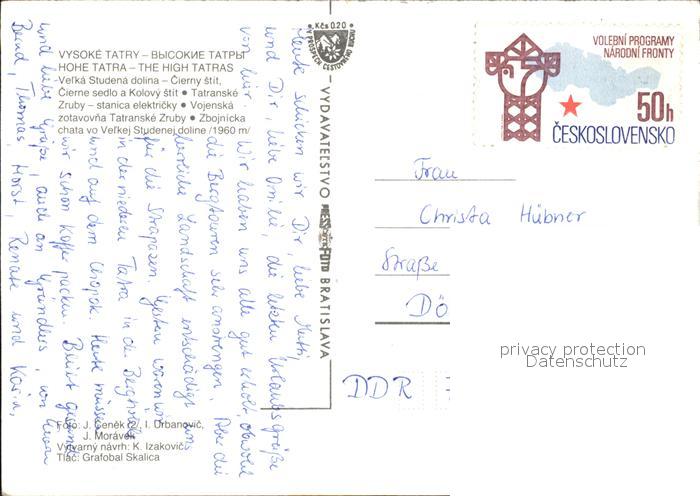 VYSOKÉ TATRY – ВЫСОКИЕ ТАТРЫ
HOHE TATRA – THE HIGH TATRAS
Veľká Studená dolina – Čierny štít,
Čierne sedlo a Kolový štít • Tatranské
Zruby – stanica električky • Vojenská
zotavovňa Tatranské Zruby • Zbojnícka
chata vo Veľkej Studenej doline /1960 m/
Kčs 0.20
VYDAVATEĽSTVO PRESSFOTO BRATISLAVA
VOLEBNÍ PROGRAMY
NÁRODNÍ FRONTY
50h
ČESKOSLOVENSKO
Heute schicken wir Dir, liebe Mutti,
und Dir, liebe Omi, die letzten Urlaubsgrüße
von hier. Wir haben uns alle gut erholt, obwohl
die Bergtouren sehr anstrengen. Aber die
herrliche Landschaft entschädigt uns
für die Strapazen. Gestern waren wir
in der niederen Tatra in der
und auf dem Chopok. Heute müssen
wir schon Koffer packen. Bleibt gesund
und liebe Grüße, auch an von Euren
Bernd, Thomas, Horst, Renate und Karin.
Frau
Christa Hübner
Straße
Dö
DDR
privacy protection
Datenschutz
Foto: J. Čeněk /2/, I. Urbanovič,
J. Morávek
Výtvarný návrh: K. Izakovič
Tlač: Grafobal Skalica